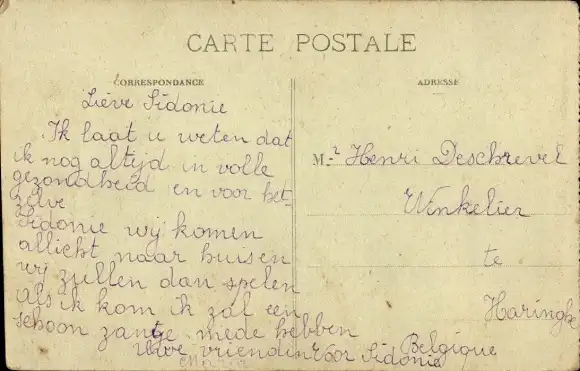 CARTE POSTALE
CORRESPONDANCE
Liéve Sidonie
Ik laat u weten dat
ik nog altijd in volle
gezondheid en voor het-
zelve
Sidonie wij komen
allicht naar huisen
wij zullen dan spelen
als ik kom ik zal een
schoon zantje mede hebben
Uwe vriendin
Maria
voor Sidonie
ADRESSE
M.r Henri Deschrevel
Winkelier
te
Haringhe
Belgique